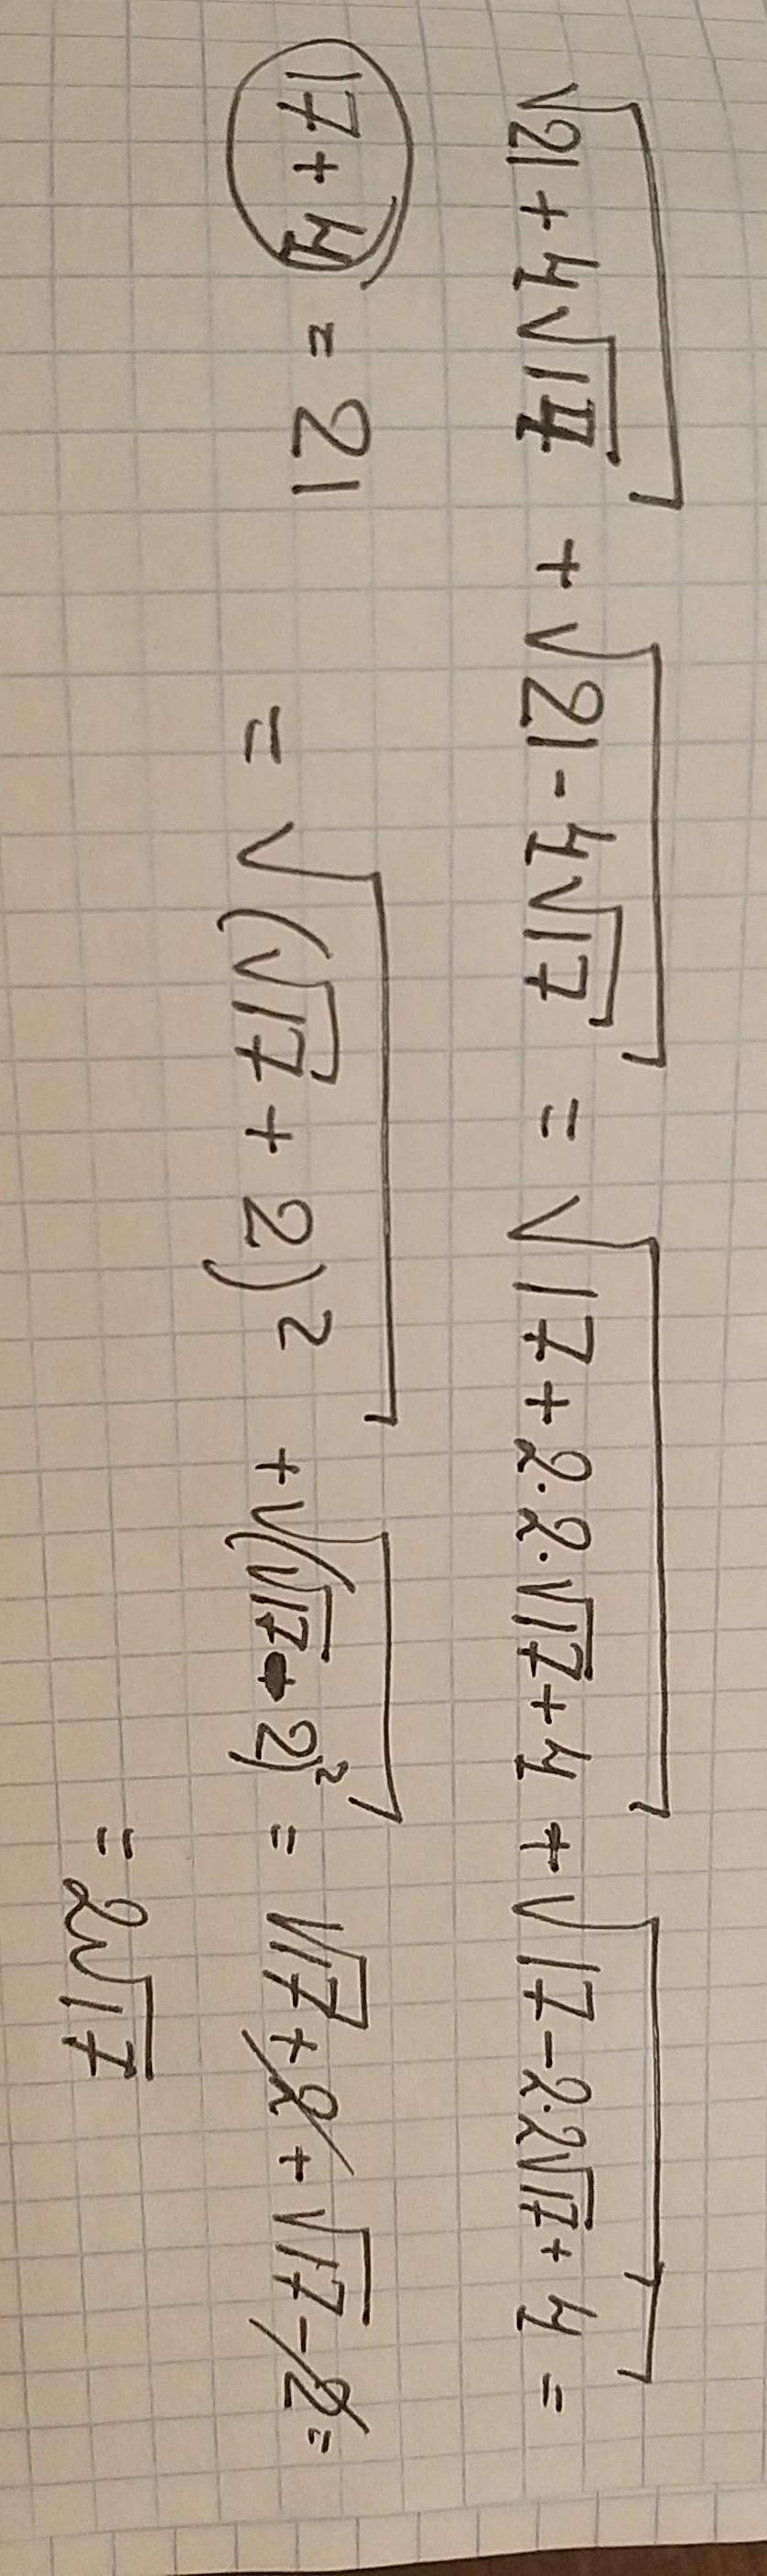 √(21 + 4√17) + √(21 - 4√17) = √(17 + 2·2·√17 + 4) + √(17 - 2·2√17 + 4) =
17 + 4 = 21
= √((√17 + 2)²) + √((√17 - 2)²) = √17 + 2 + √17 - 2 =
= 2√17